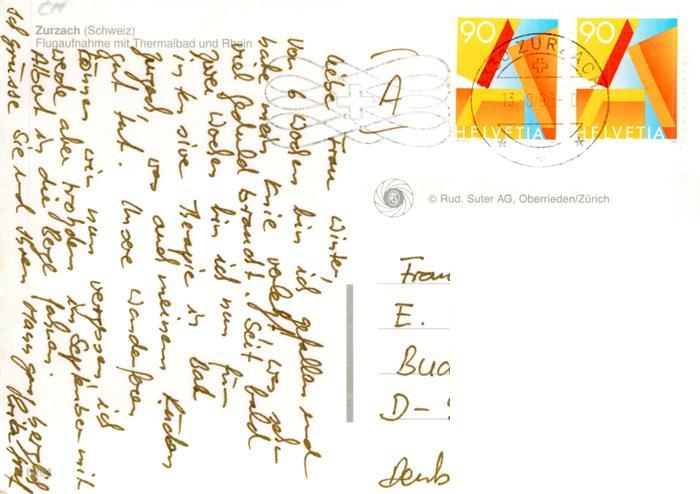 CH
Zurzach (Schweiz)
Flugaufnahme mit Thermalbad und Rhein
A
90
90
HELVETIA
HELVETIA
ZURZACH
© Rud. Suter AG, Oberrieden/Zürich
Liebe Frau Winter,
Vor 6 Wochen bin ich gefallen und
habe mein Knie verletzt, was sehr
viel Geduld braucht. Seit bald
zwei Wochen bin ich nun für
intensive Therapie in Bad
Zurzach, was auch meinem Rücken
gut tut. Unsere Wanderferien
können wir nun vergessen, ich
werde aber trotzdem im September mit
Albert in die Berge fahren.
Ich grüsse Sie und Ihren Mann ganz herzlich
Frau
E.
Bud
D-
Deuts